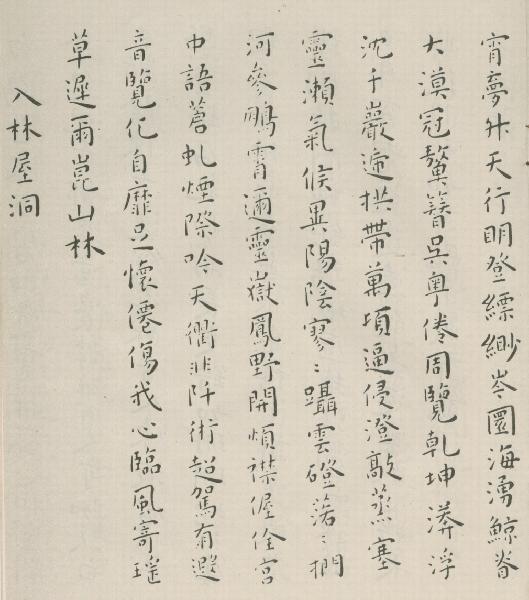 宵夢升天行明登縹緲岑圜海湧鯨脊
大漠冠鼇簪吳粵倦周覽乾坤漭浮
沈千巖遞拱帶萬頃逼侵澄敲蒸塞
靈瀨氣候異陽陰寥〻躡雲磴落〻捫
河參鵬霄邇靈嶽鳳野開煩襟偓佺宮
中語蒼虬煙際吟天衢非阡術超駕有遐
音覽化自靡足懷僊傷我心臨風寄瑤
草遲爾崑山林
入林屋洞